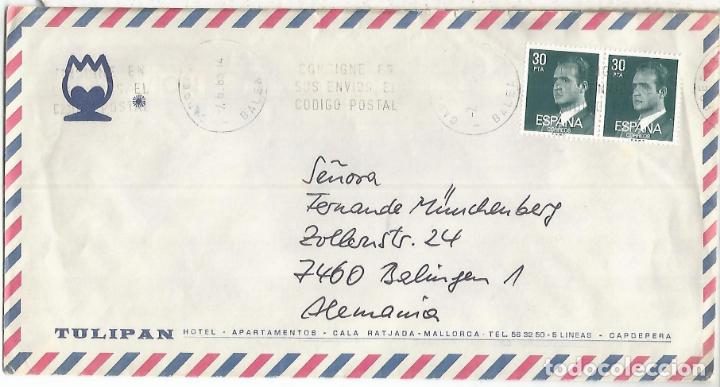 CONSIGNE EN
SUS ENVIOS EL
CODIGO POSTAL
EN
EL
POSTAL
BALEA
BALEA
30
PTA
ESPAÑA
CORREOS
30
PTA
ESPAÑA
CORREOS
Señora
Fernande Münchenberg
Zollernstr. 24
7460 Balingen 1
Alemania
TULIPAN HOTEL - APARTAMENTOS - CALA RATJADA - MALLORCA - TEL. 56 32 50 - 5 LINEAS - CAPDEPERA
todocoleccion